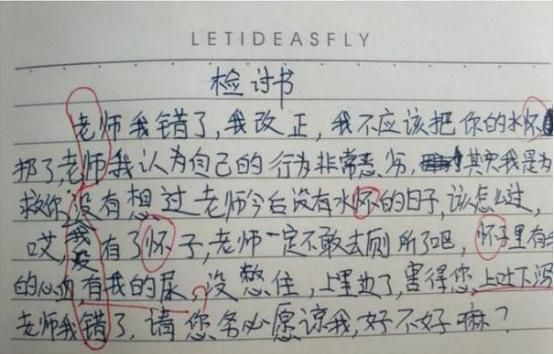 LETIDEASFLY
检讨书
老师我错了,我改正,我不应该把你的水怀
邦了老师我认为自己的行为非常恶劣,其实我是为
救你,没有想过老师今后没有水怀的日子,该怎么过,
哎,我没有了怀子,老师一定不敢去厕所了吧,怀子里有
的心血,有我的尿,没憋住,上里边了,害得您上吐下泻
老师我错了,请您务必愿谅我,好不好嘛?